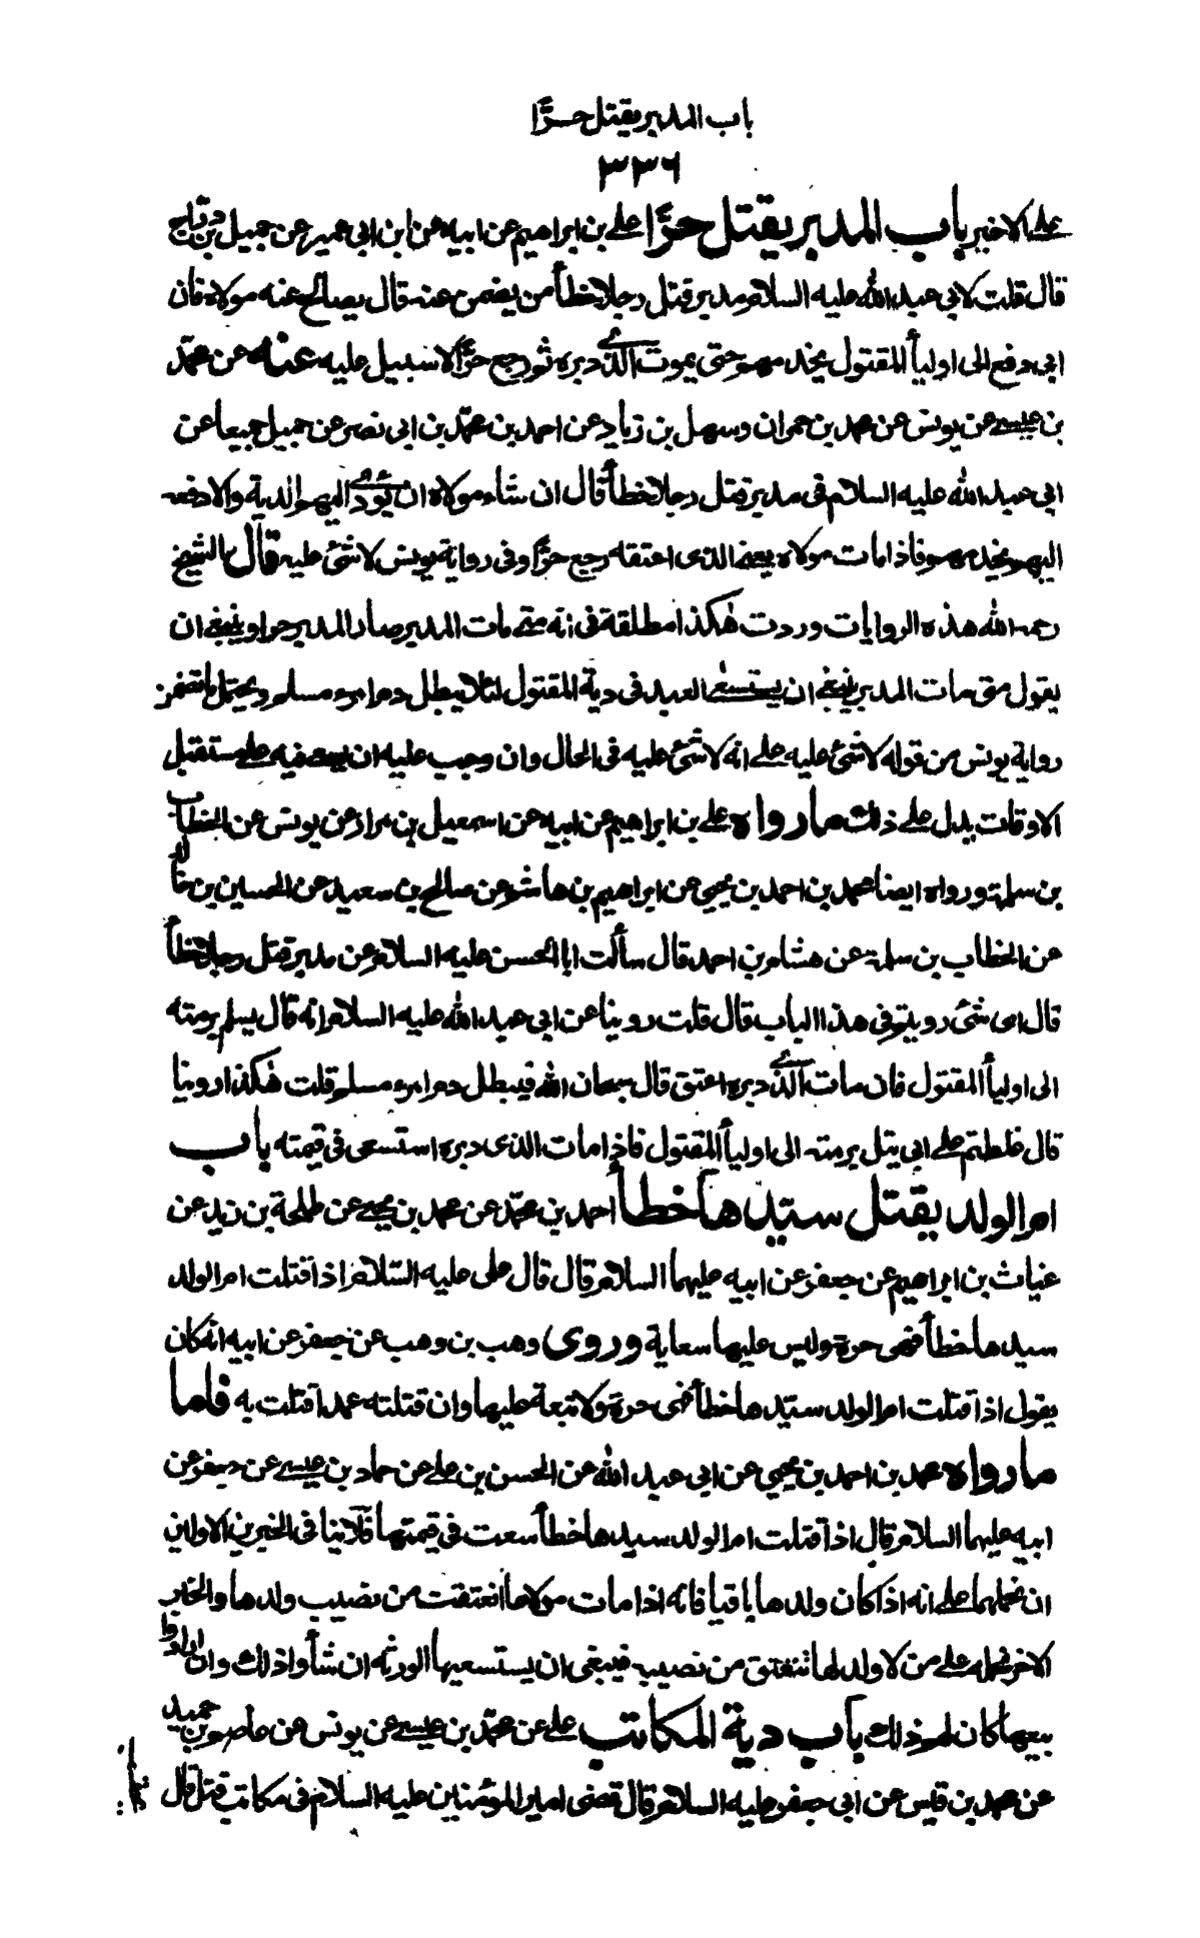 باب المدبر يقتل حرًّا
٣٣٦
على الاخير باب المدبر يقتل حرًّا على بن ابراهيم عن ابيه عن ابن ابى عمير عن جميل بن دراج
قال قلت لابى عبد الله عليه السلام مدبر قتل رجلا خطأ من يضمن عنه قال يصالح عنه مولاه فان
ابى دفع الى اوليأ المقتول يخدمهم حتى يموت الذى دبره ثم رجع حرًّا لا سبيل عليه عنه عن محمّد
بن عيسى عن يونس عن محمد بن حمران وسهل بن زياد عن احمد بن محمّد بن ابى نصر عن جميل جميعا عن
ابى عبد الله عليه السلام فى مدبر قتل رجلا خطأ قال ان شاء مولاه ان يؤدى اليهم الدية والا دفعه
اليهم يخدمهم فاذا مات مولاه يعنى الذى اعتقه رجع حرًّا وفى رواية يونس لا شئ عليه قال الشيخ
رحمه الله هذه الروايات وردت هكذا مطلقة فى انه متى مات المدبر صار المدبر حرا وينبغى ان
يقول متى مات المدبر ينبغى ان يستسعى العبد فى دية المقتول لئلا يبطل دم امرء مسلم ويحتمل ما تضمن
رواية يونس من قوله لا شئ عليه على انه لا شئ عليه فى الحال وان وجب عليه ان يسعى فيه على مستقبل
الاوقات يدل على ذلك ما رواه على بن ابراهيم عن ابيه عن اسمعيل بن مرار عن يونس عن الخطاب
بن سلمة ورواه ايضا محمد بن احمد بن يحيى عن ابراهيم بن هاشم عن صالح بن سعيد عن الحسين بن خالد
عن الخطاب بن سلمة عن هشام بن احمد قال سألت ابا الحسن عليه السلام عن مدبر قتل رجلا خطأ
قال اى شئ رويتم فى هذا الباب قال قلت روينا عن ابى عبد الله عليه السلام انه قال يسلم برمته
الى اوليأ المقتول فان مات الذى دبره اعتق قال سبحان الله فيبطل دم امرء مسلم قلت هكذا روينا
قال غلطتم على ابى يتل برمته الى اوليأ المقتول فاذا مات الذى دبره استسعى فى قيمته باب
ام الولد يقتل سيّدها خطأ احمد بن محمّد عن محمد بن يحيى عن طلحة بن زيد عن
غياث بن ابراهيم عن جعفر عن ابيه عليهما السلام قال قال على عليه السّلام اذا قتلت ام الولد
سيدها خطأ فهى حرة وليس عليها سعاية وروى وهب بن وهب عن جعفر عن ابيه انه كان
يقول اذا قتلت ام الولد سيّدها خطأ فهى حرة ولا تبعة عليها وان قتلته عمدا قتلت به فاما
ما رواه محمد بن احمد بن يحيى عن ابى عبد الله عن الحسن بن على عن حماد بن عيسى عن جعفر عن
ابيه عليهما السلام قال اذا قتلت ام الولد سيدها خطأ سعت فى قيمتها فلا ينا فى الخبرين الاولين
ان نحملهما على انه اذا كان ولدها باقيا فانه اذا مات مولاها انعتقت من نصيب ولدها والخبر
الاخر نحمله على من لا ولد لها تنعتق من نصيبه فينبغى ان يستسعيها الورثه ان شأوا ذلك وان ارادوا
بيعها كان لهم ذلك باب دية المكاتب على عن محمّد بن عيسى عن يونس عن عاصم بن حميد
عن محمد بن قيس عن ابى جعفر عليه السلام قال قضى امير المؤمنين عليه السلام فى مكاتب قتل قال